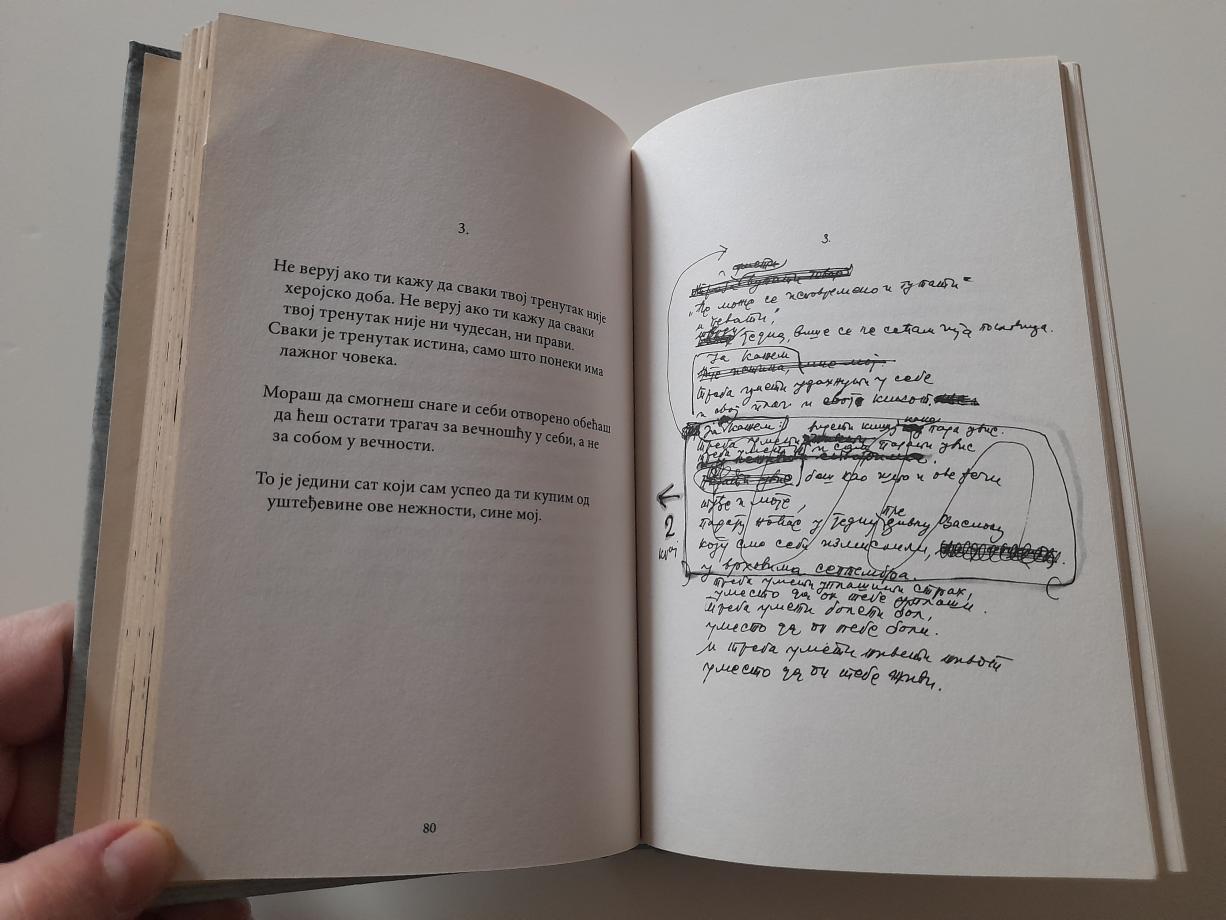 3.
Не веруј ако ти кажу да сваки твој тренутак није
херојско доба. Не веруј ако ти кажу да сваки
твој тренутак није ни чудесан, ни прави.
Сваки је тренутак истина, само што понеки има
лажног човека.
Мораш да смогнеш снаге и себи отворено обећаш
да ћеш остати трагач за вечношћу у себи, а не
за собом у вечности.
То је једини сат који сам успео да ти купим од
уштеђевине ове нежности, сине мој.
80
3.
„Не може се истовремено и гутати
и певати",
више се не сећам чија пословица.
Ја кажем
треба умети удахнути у себе
и свој плач и своје кишот.
Ја кажем:
треба умети
баш као што и ове речи
твоје и моје,
падају ноћас у једну дивну
коју смо себи измислили,
у врховима септембра.
треба умети уплашити страх,
уместо да он тебе уплаши.
треба умети болети бол,
уместо да он тебе боли.
и треба умети живети живот
уместо да он тебе живи.
2